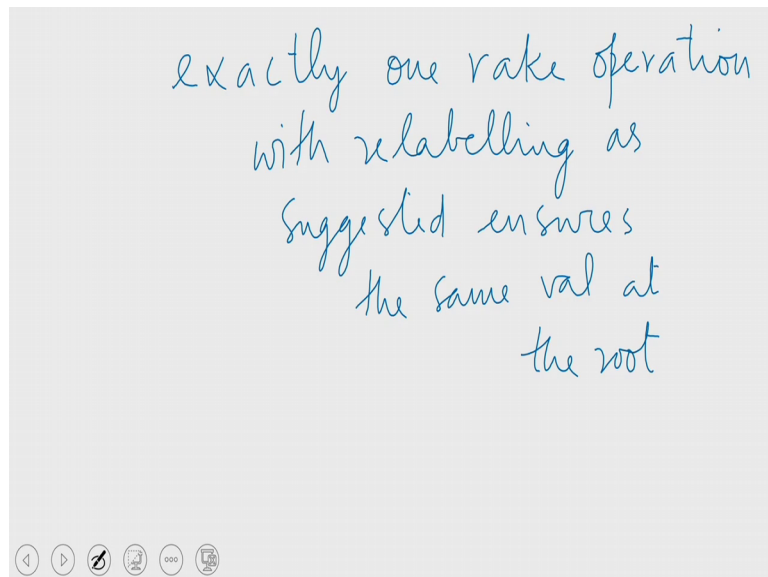 exactly one rake operation
with relabelling as
suggested ensures
the same val at
the root